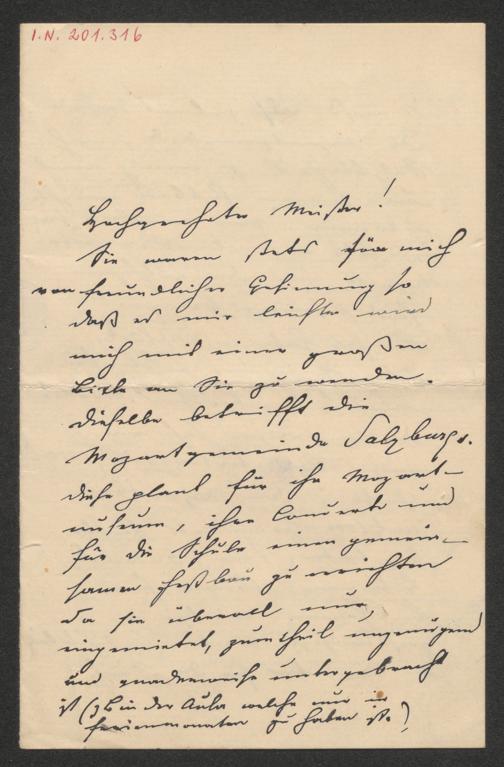 I.N. 201.316
Hochgeehrter Meister!
Sie waren stets für mich
von freundlicher Gesinnung so
daß es mir leichter wird
mich mit einer großen
Bitte an Sie zu wenden.
dieselbe betrifft die
Mozartgemeinde Salzburgs.
diese plant für ihr Mozart-
museum, ihre Concerte und
für die Schule einen gemein-
samen Festbau zu errichten
da sie überall nur,
eingemietet, zum theil ungenügend
und gnadenweise untergebracht
ist (z B in der Aula welche nur in
Ferienmonaten zu haben ist.)